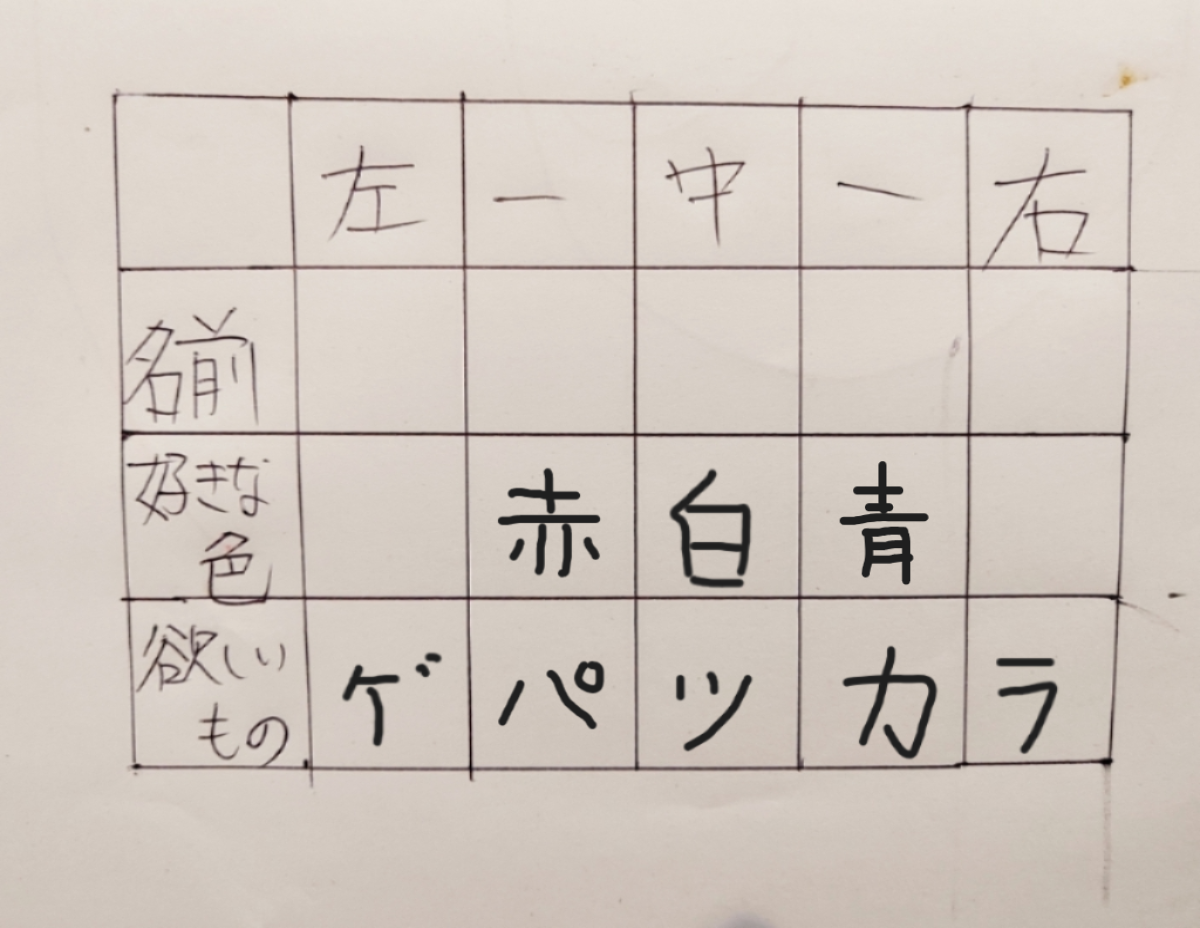 左 一 中 一 右
名前
好きな 赤 白 青
色
欲しい ゲ パ ツ カ ラ
もの